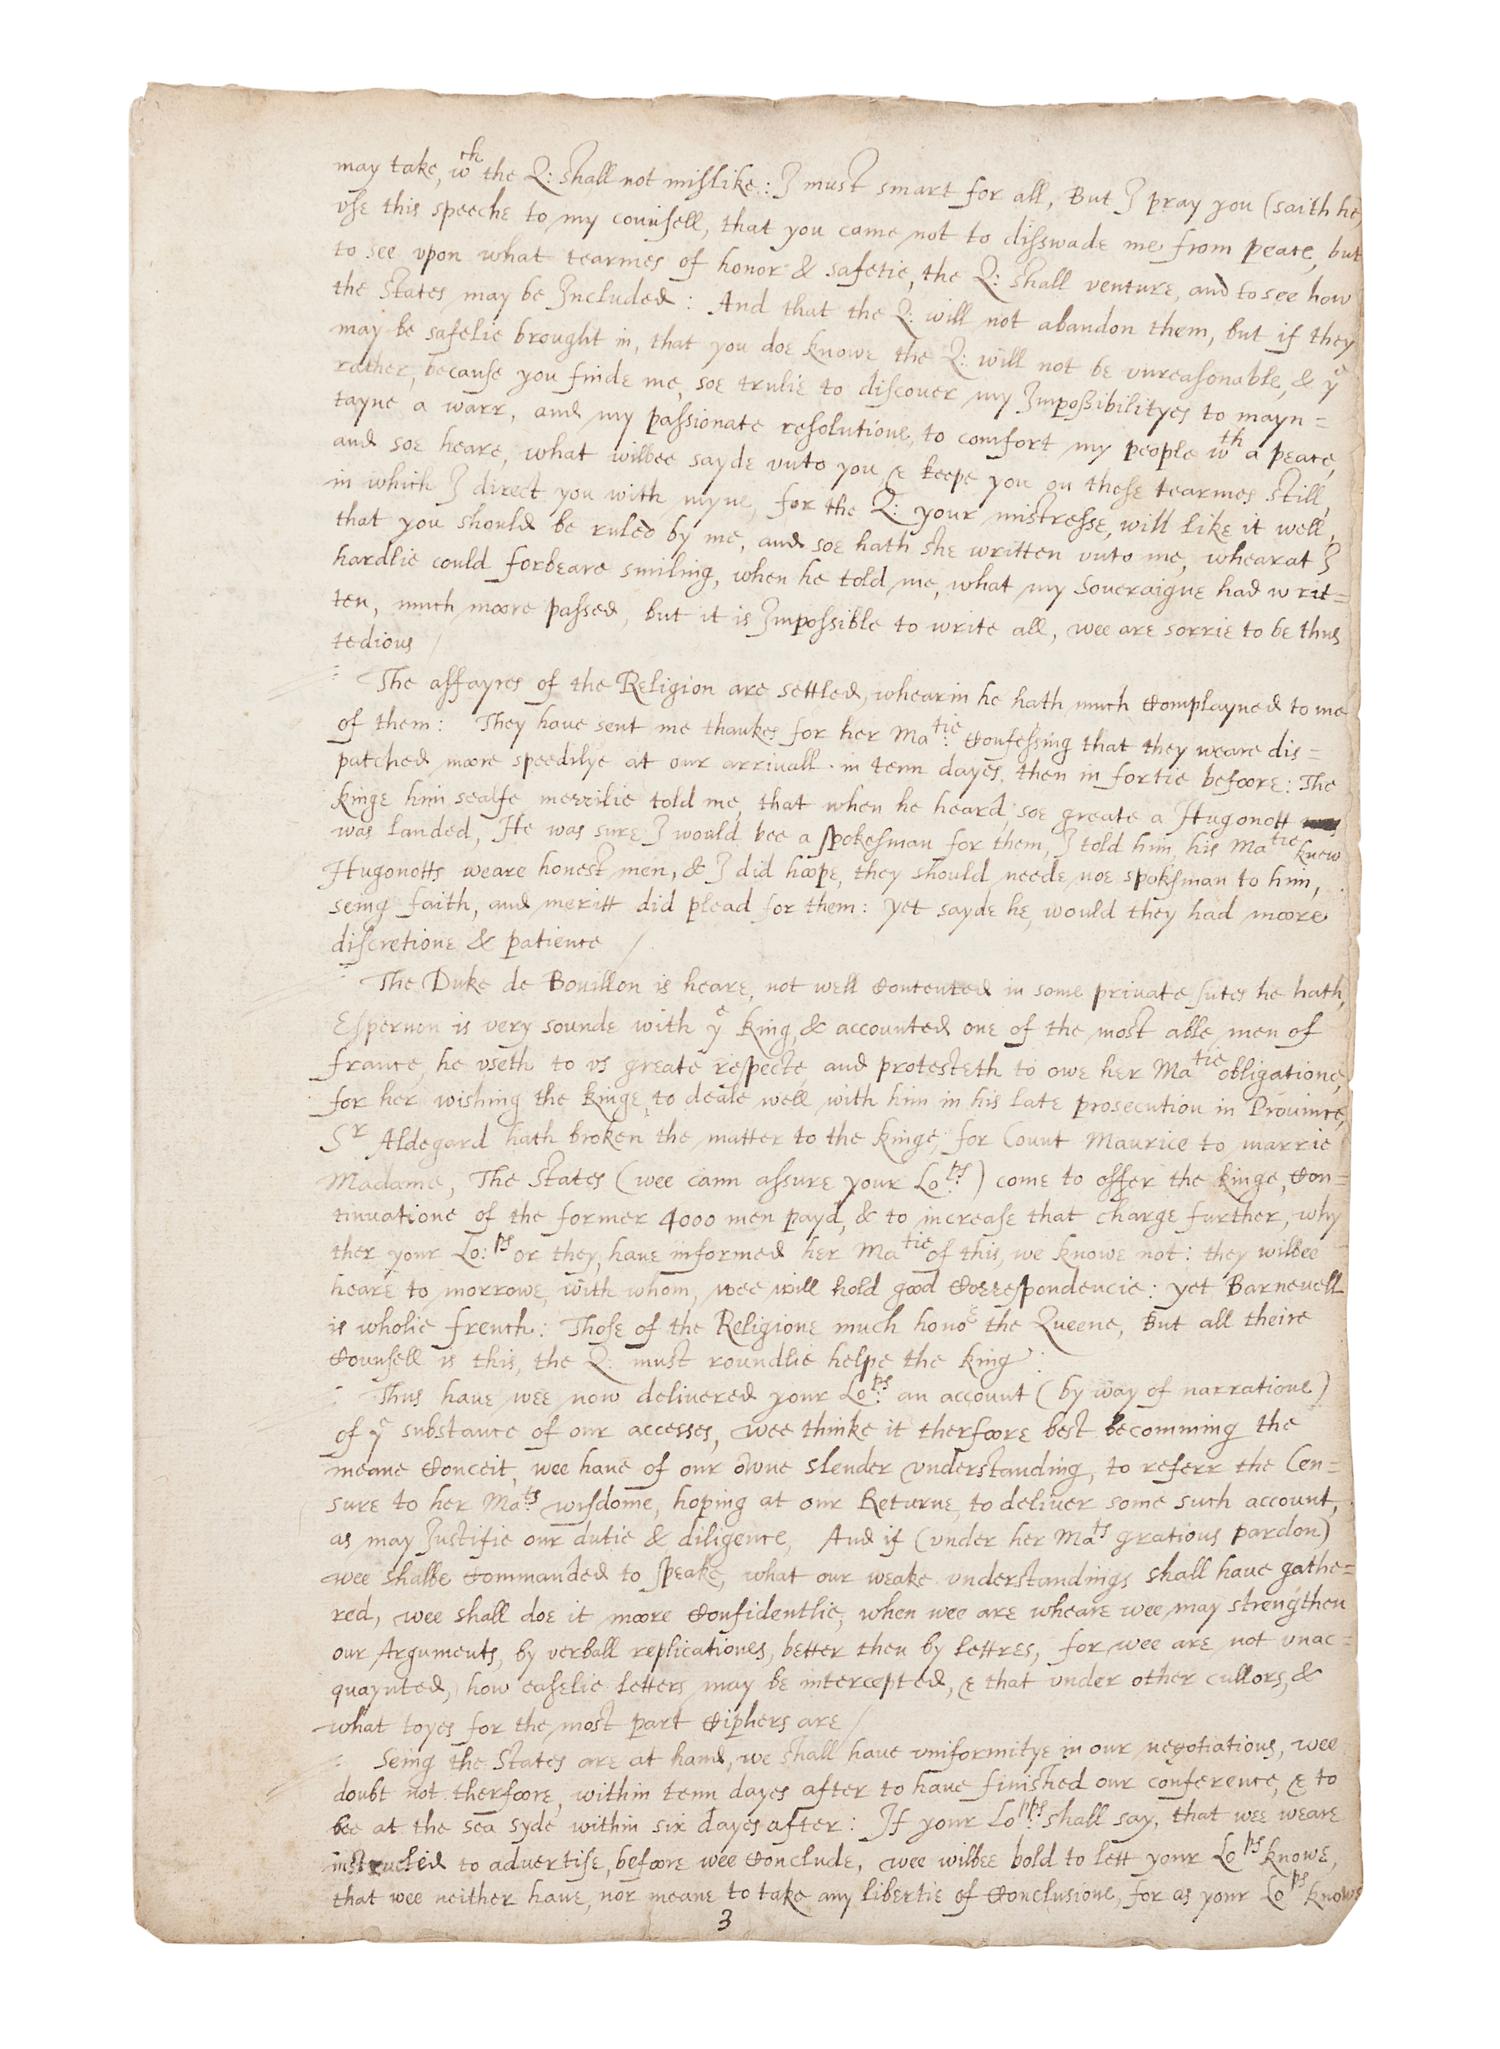 may take, wch the Q: shall not mislike: I must smart for all, But I pray you (saith he)
vse this speeche to my counsell, that you came not to disswade me from peace, but
to see vpon what tearmes of honor & safetie, the Q: shall venture, and to see how
the States may be Included: And that the Q: will not abandon them, but if they
may be safelie brought in, that you doe knowe the Q: will not be vnreasonable, & ye
rather, because you finde me, soe trulie to discouer my Impossibilityes to mayn=
tayne a warr, and my passionate resolutione, to comfort my people wth a peace,
and soe heare, what wilbee sayde vnto you, & keepe you on these tearmes still,
in which I direct you with myne, for the Q: your mistresse, will like it well,
that you should be ruled by me, and soe hath she written vnto me, whearat I
hardlie could forbeare smiling, when he told me, what my Soueraigne had writ=
ten, much moore passed, but it is Impossible to write all, wee are sorrie to be thus
tedious /
The affayres of the Religion are settled, whearin he hath much Complayned to me
of them: They haue sent me thankes for her Matie: Confessing that they weare dis=
patched moore speedilye at our arrivall in tenn dayes, then in fortie befoore: The
kinge him sealfe merrilie told me, that when he heard, soe greate a Hugonott
was landed, He was sure I would bee a spokesman for them, I told him, his Matie knew
Hugonotts weare honest men, & I did hoope, they should neede noe spoksman to him,
seing faith, and meritt did plead for them: yet sayde he, would they had moore
discretione & patience /
The Duke de Bouillon is heare, not well Contented in some private sutes he hath,
Espernon is very sounde with ye King, & accounted one of the most able men of
france, he vseth to vs greate respecte, and protesteth to owe her Matie obligatione,
for her wishing the kinge, to deale well with him in his late prosecution in Province,
Sr Aldegard hath broken the matter to the kinge, for Count Maurice to marrie
Madame, The States (wee cann assure your Lops:) come to offer the kinge, Con=
tinuatione of the former 4000 men payd, & to increase that charge further, why
ther your Lo:ps or they, haue informed her Matie of this, we knowe not: they wilbee
heare to morrowe, with whom, wee will hold good Correspondencie: yet Barnevell
is wholie french: Those of the Religione much hono the Queene, But all theire
Counsell is this, the Q: must roundlie helpe the king:
Thus haue wee now delivered your Lops: an account (by way of narratione)
of ye substance of our accesses, wee thinke it therfoore best becomming the
meane Conceit, wee haue of our owne slender vnderstanding, to referr the Cen=
sure to her Mats: wisdome, hoping at our Returne, to deliver some such account,
as may Iustifie our dutie & diligence, And if (vnder her Mats gratious pardon)
wee shalbe Commanded to speake, what our weake vnderstandings shall haue gathe=
red, wee shall doe it moore Confidentlie, when wee are wheare wee may strengthen
our Arguments, by verball replicationes, better then by lettres, for wee are not vnac=
quaynted, how easelie letters may be intercepted, & that vnder other cullors, &
what toyes for the most part Ciphers are /
Seing the States are at hand, we shall haue vniformitye in our negotiations, wee
doubt not therfoore, within tenn dayes after to haue finished our conference, & to
bee at the sea syde within six dayes after: If your Lopps: shall say, that wee weare
instructed to advertise, befoore wee Conclude, wee wilbee bold to lett your Lops knowe,
that wee neither haue, nor meane to take any libertie of Conclusione, for as your Lops knowe
3